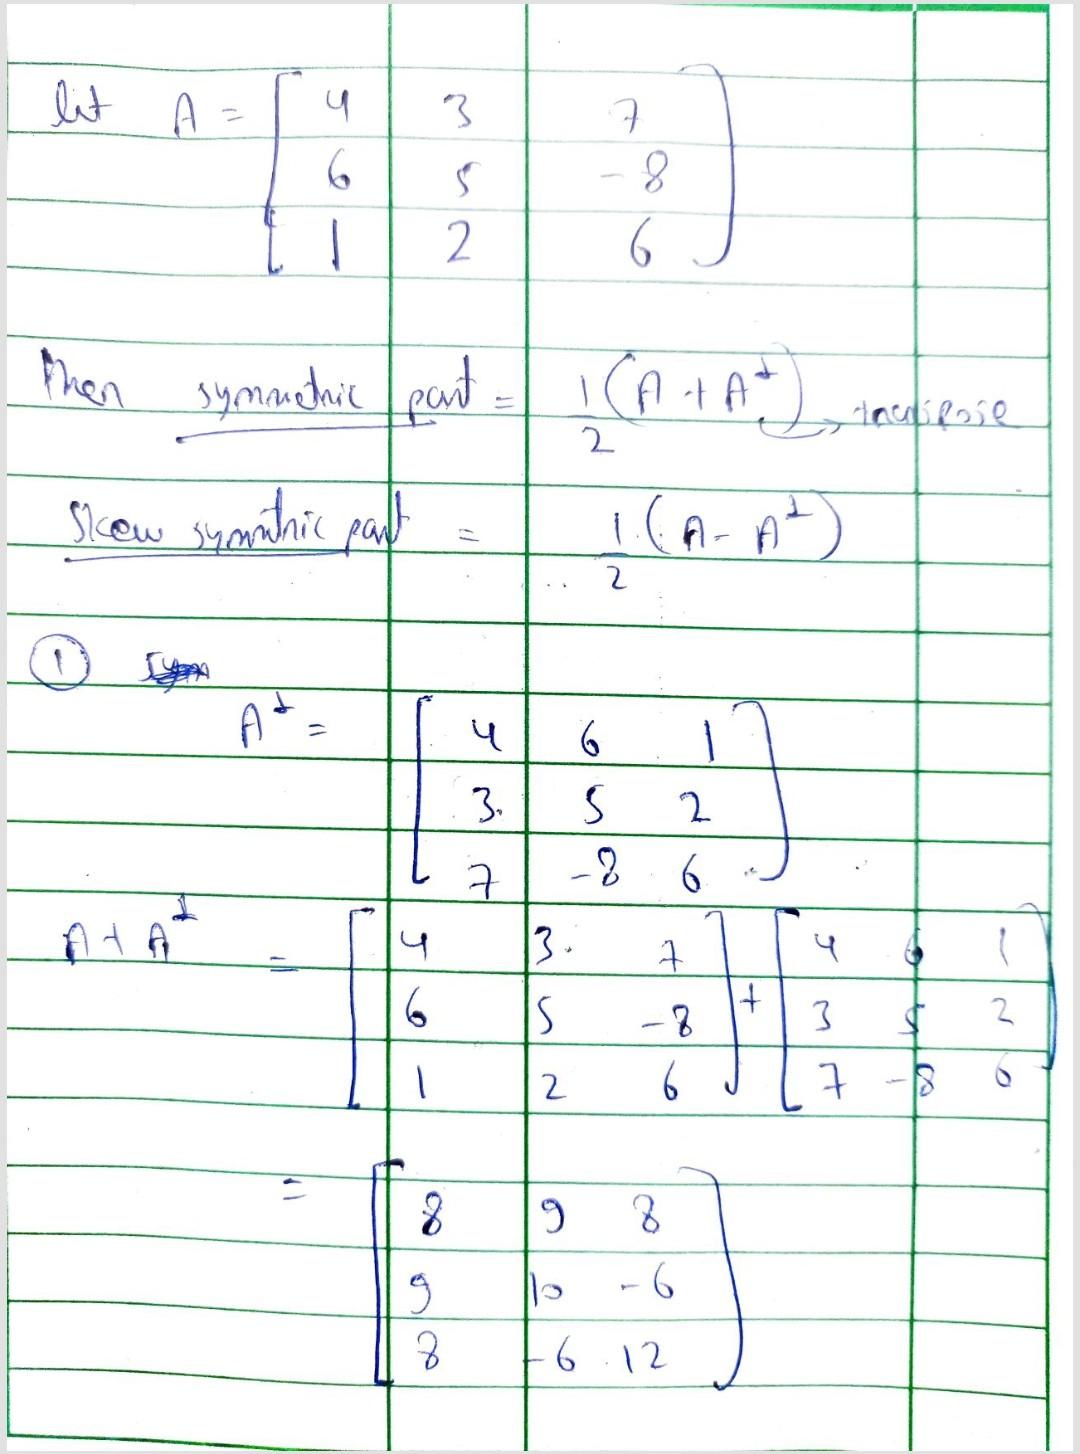 let A = [ 4 3 7
6 5 -8
1 2 6 ]
Then symmetric part = 1/2 (A + Aᵗ) → transpose
Skew symmetric part = 1/2 (A - Aᵗ)
① sym
Aᵗ = [ 4 6 1
3 5 2
7 -8 6 ]
A + Aᵗ = [ 4 3 7 ] + [ 4 6 1 ]
6 5 -8 3 5 2
1 2 6 7 -8 6
= [ 8 9 8
9 10 -6
8 -6 12 ]